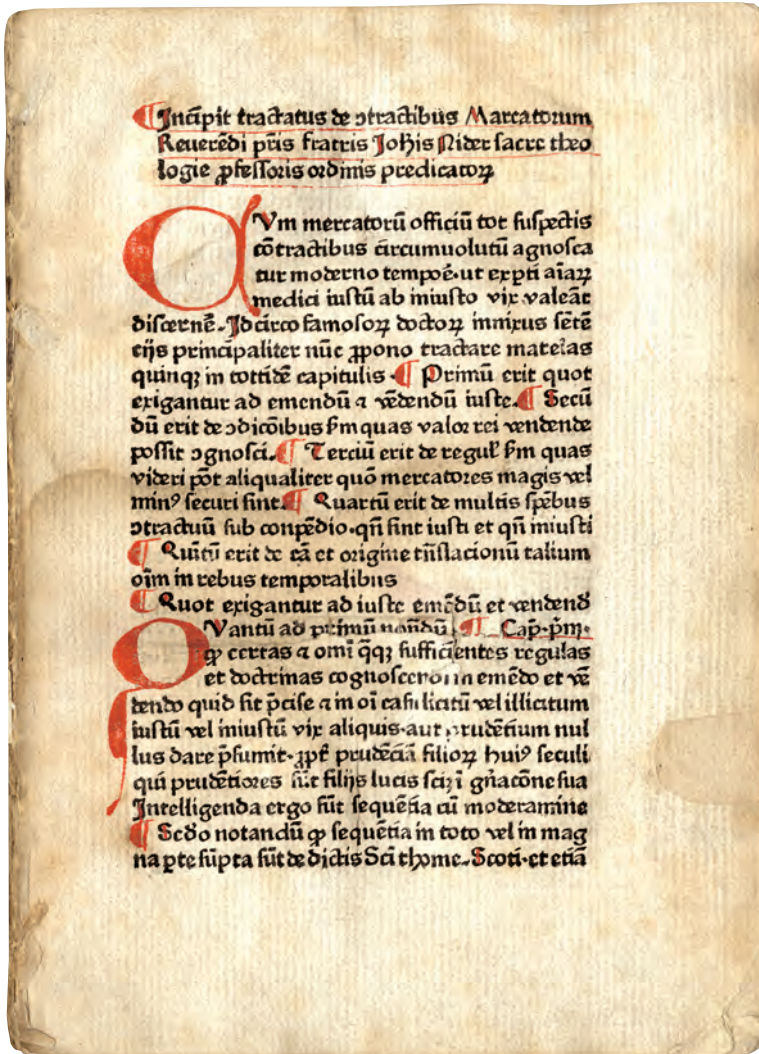 ¶ Incipit tractatus de ↄtractibus Marcatorum
Reuerēdi pr̄is fratris Joh̄is Nider sacre theo
logie ꝓfessoris ordinis predicatoꝝ
CVm mercatorū officiū tot suspectis
cōtractibus circumuolutū agnosca
tur moderno tempoē·ut exꝑti aīaꝝ
medici iustū ab iniusto vix valeāt
discernē. Idcirco famosoꝝ doctoꝝ innixus sētē
cijs principaliter nūc ꝓpono tractare mateīas
quinqꝫ in tottidē capitulis · ¶ Primū erit quot
exigantur ad emendū ⁊ vēdendū iuste. ¶ Secū
dū erit de ↄdicōibus ẜm quas valor rei vendende
possit ↄgnosci. ¶ Terciū erit de regul̄ ẜm quas
videri pōt aliqualiter quō mercatores magis vel
minꝰ securi sint ¶ Quartū erit de multis spēbus
ↄtractuū sub conpēdio·qn̄ sint iusti et qn̄ iniusti
¶ Quītū erit de cā et origine tn̄slacionū talium
oīm in rebus temporalibus
¶ Quot exigantur ad iuste emēdū et vendendū
QVantū ad primū notādū ¶ Cap̄·pm̄·
ꝙ certas ⁊ omī qͣqꝫ sufficientes regulas
et doctrinas cognoscendi in emēdo et vē
dendo quid sit p̄cise ⁊ in oī casu licitū vel illicitum
iustū vel iniustū vix aliquis·aut prudētium nul
lus dare p̄sumit·ꝓpt̄ prudēciā filioꝝ huiꝰ seculi
qui prudētiores sūt filijs lucis in gn̄acōne sua
Intelligenda ergo sūt sequētia cū moderamine
¶ Scdo notandū ꝙ sequētia in toto vel in mag
na ꝑte sūpta sūt de dictis Scī thome. Scoti·et etiā